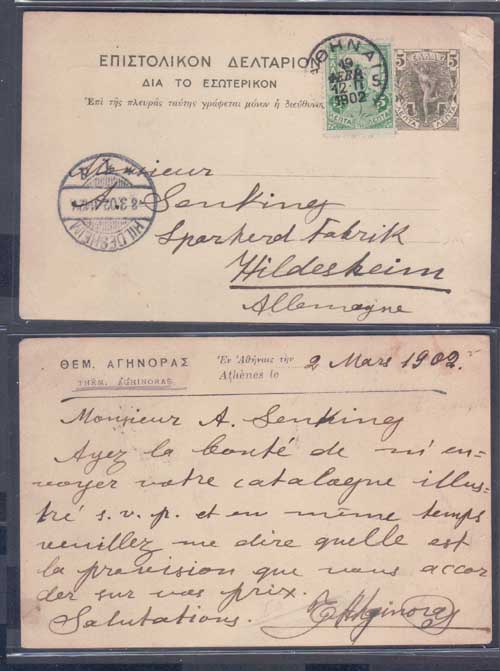 ΕΠΙΣΤΟΛΙΚΟΝ ΔΕΛΤΑΡΙΟΝ
ΔΙΑ ΤΟ ΕΣΩΤΕΡΙΚΟΝ
Ἐπὶ τῆς πλευρᾶς ταύτης γράφεται μόνον ἡ διεύθυνσ
ΑΘΗΝΑΙ 5
19
ΦΕΒΡ
12 Π
1902
5 5
ΛΕΠΤΑ ΛΕΠΤΑ
5 5
ΛΕΠΤΑ
Monsieur
A. Senking
Sparherd Fabrik
Hildesheim
Allemagne
8.3.02
HILDESHEIM
ΘΕΜ. ΑΓΗΝΟΡΑΣ
THÉM. AGHINORAS
Ἐν Ἀθήναις τῇ
Athènes le
2 Mars 1902.
Monsieur A. Senking
Ayez la bonté de m'en-
voyer votre catalogue illus-
tré s.v.p. et en même temps
veuillez me dire quelle est
la provision que vous accor
der sur vos prix.
Salutations.